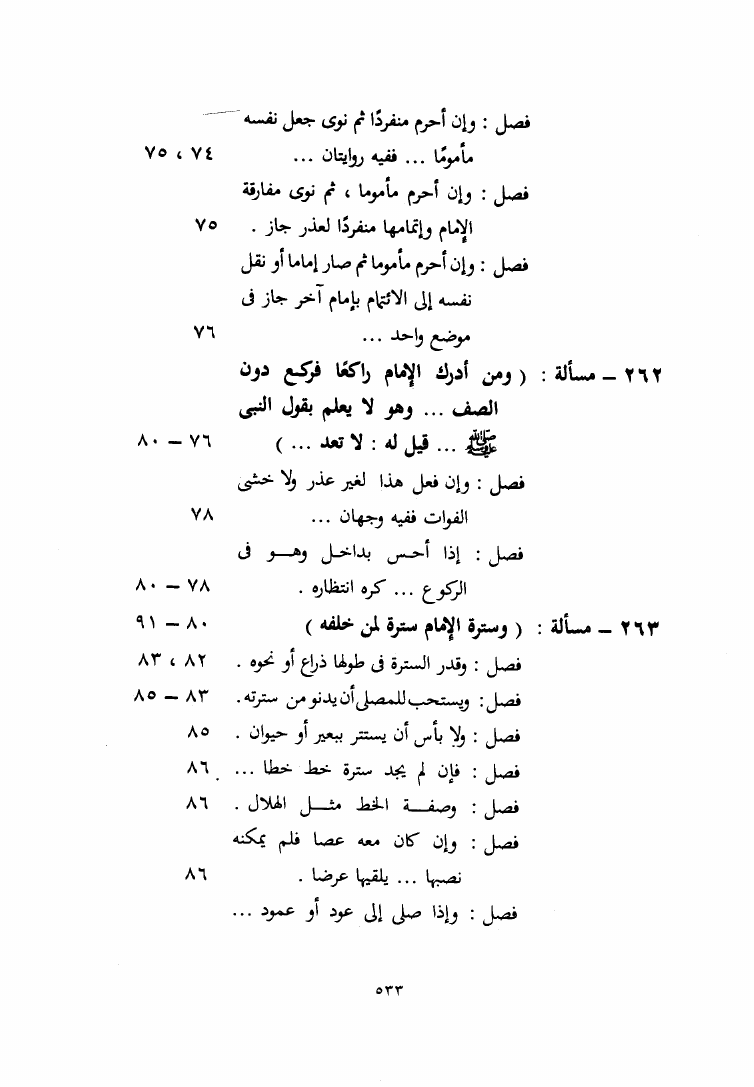 فصل : وإن أحرم منفردًا ثم نوى جعل نفسه
مأمومًا ... ففيه روايتان ... ٧٤ ، ٧٥
فصل : وإن أحرم مأموما ، ثم نوى مفارقة
الإمام وإتمامها منفردًا لعذر جاز . ٧٥
فصل : وإن أحرم مأموما ثم صار إماما أو نقل
نفسه إلى الائتمام بإمام آخر جاز فى
موضع واحد ... ٧٦
٢٦٢ – مسألة : ( ومن أدرك الإمام راكعًا فركع دون
الصف ... وهو لا يعلم بقول النبى
ﷺ ... قيل له : لا تعد ... ) ٧٦ – ٨٠
فصل : وإن فعل هذا لغير عذر ولا خشى
الفوات ففيه وجهان ... ٧٨
فصل : إذا أحس بداخل وهو فى
الركوع ... كره انتظاره . ٧٨ – ٨٠
٢٦٣ – مسألة : ( وسترة الإمام سترة لمن خلفه ) ٨٠ – ٩١
فصل : وقدر السترة فى طولها ذراع أو نحوه . ٨٢ ، ٨٣
فصل : ويستحب للمصلى أن يدنو من سترته . ٨٣ – ٨٥
فصل : ولا بأس أن يستتر ببعير أو حيوان . ٨٥
فصل : فإن لم يجد سترة خط خطا ... ٨٦
فصل : وصفة الخط مثل الهلال . ٨٦
فصل : وإن كان معه عصا فلم يمكنه
نصبها ... يلقيها عرضا . ٨٦
فصل : وإذا صلى إلى عود أو عمود ...
٥٣٣